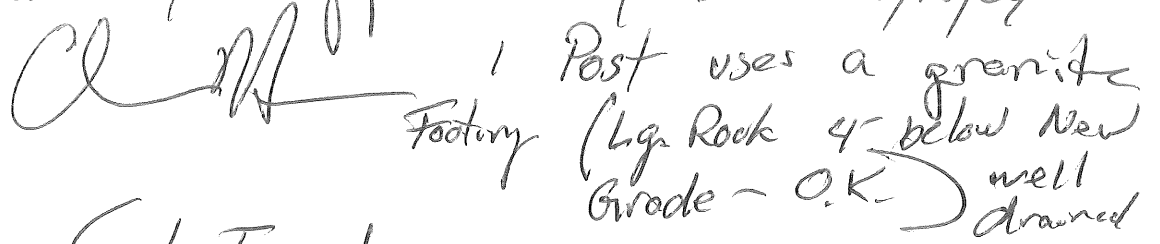 1 Post uses a granite
Footing (Lg. Rock 4' below New
Grade - O.K.) well
drained